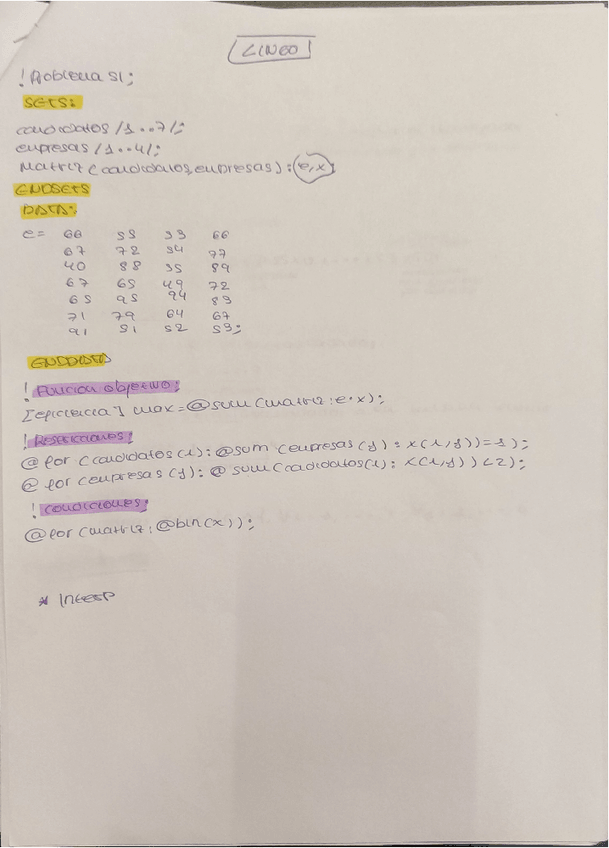 LINGO
! Problema S1;
SETS:
candidatos /1..7/;
empresas /1..4/;
Matriz (candidatos,empresas): e,x;
ENDSETS
DATA:
e= 66 55 33 66
67 72 34 77
40 88 35 89
67 65 49 72
65 95 94 83
71 79 64 67
91 51 52 53;
ENDDATA
! Funcion objetivo;
[eficiencia] max=@sum (matriz: e*x);
! Restricciones;
@for (candidatos(i): @sum (empresas (j): x(i,j))=1);
@for (empresas (j): @sum(cadidatos(i): x(i,j))<2);
! condiciones;
@for (matriz: @bin(x));